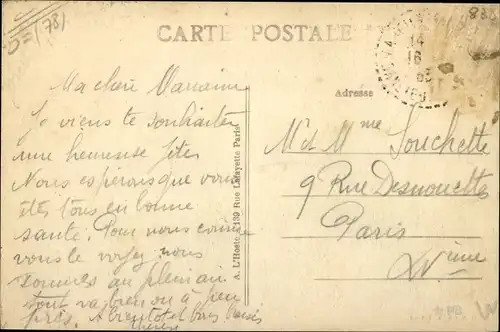 D=(78)
CARTE POSTALE
14
16
Adresse
Ma chère Marraine
Je viens te souhaiter
une heureuse fête
Nous espérons que vous
êtes tous en bonne
santé. Pour nous comme
vous le voyez nous
sommes au plein air
tout va bien ou à peu
près. A bientôt et bons baisers
A. L'Hoste 139 Rue Lafayette Paris
Mr et Mme Souchette
9 Rue Desnouettes
Paris
XVème